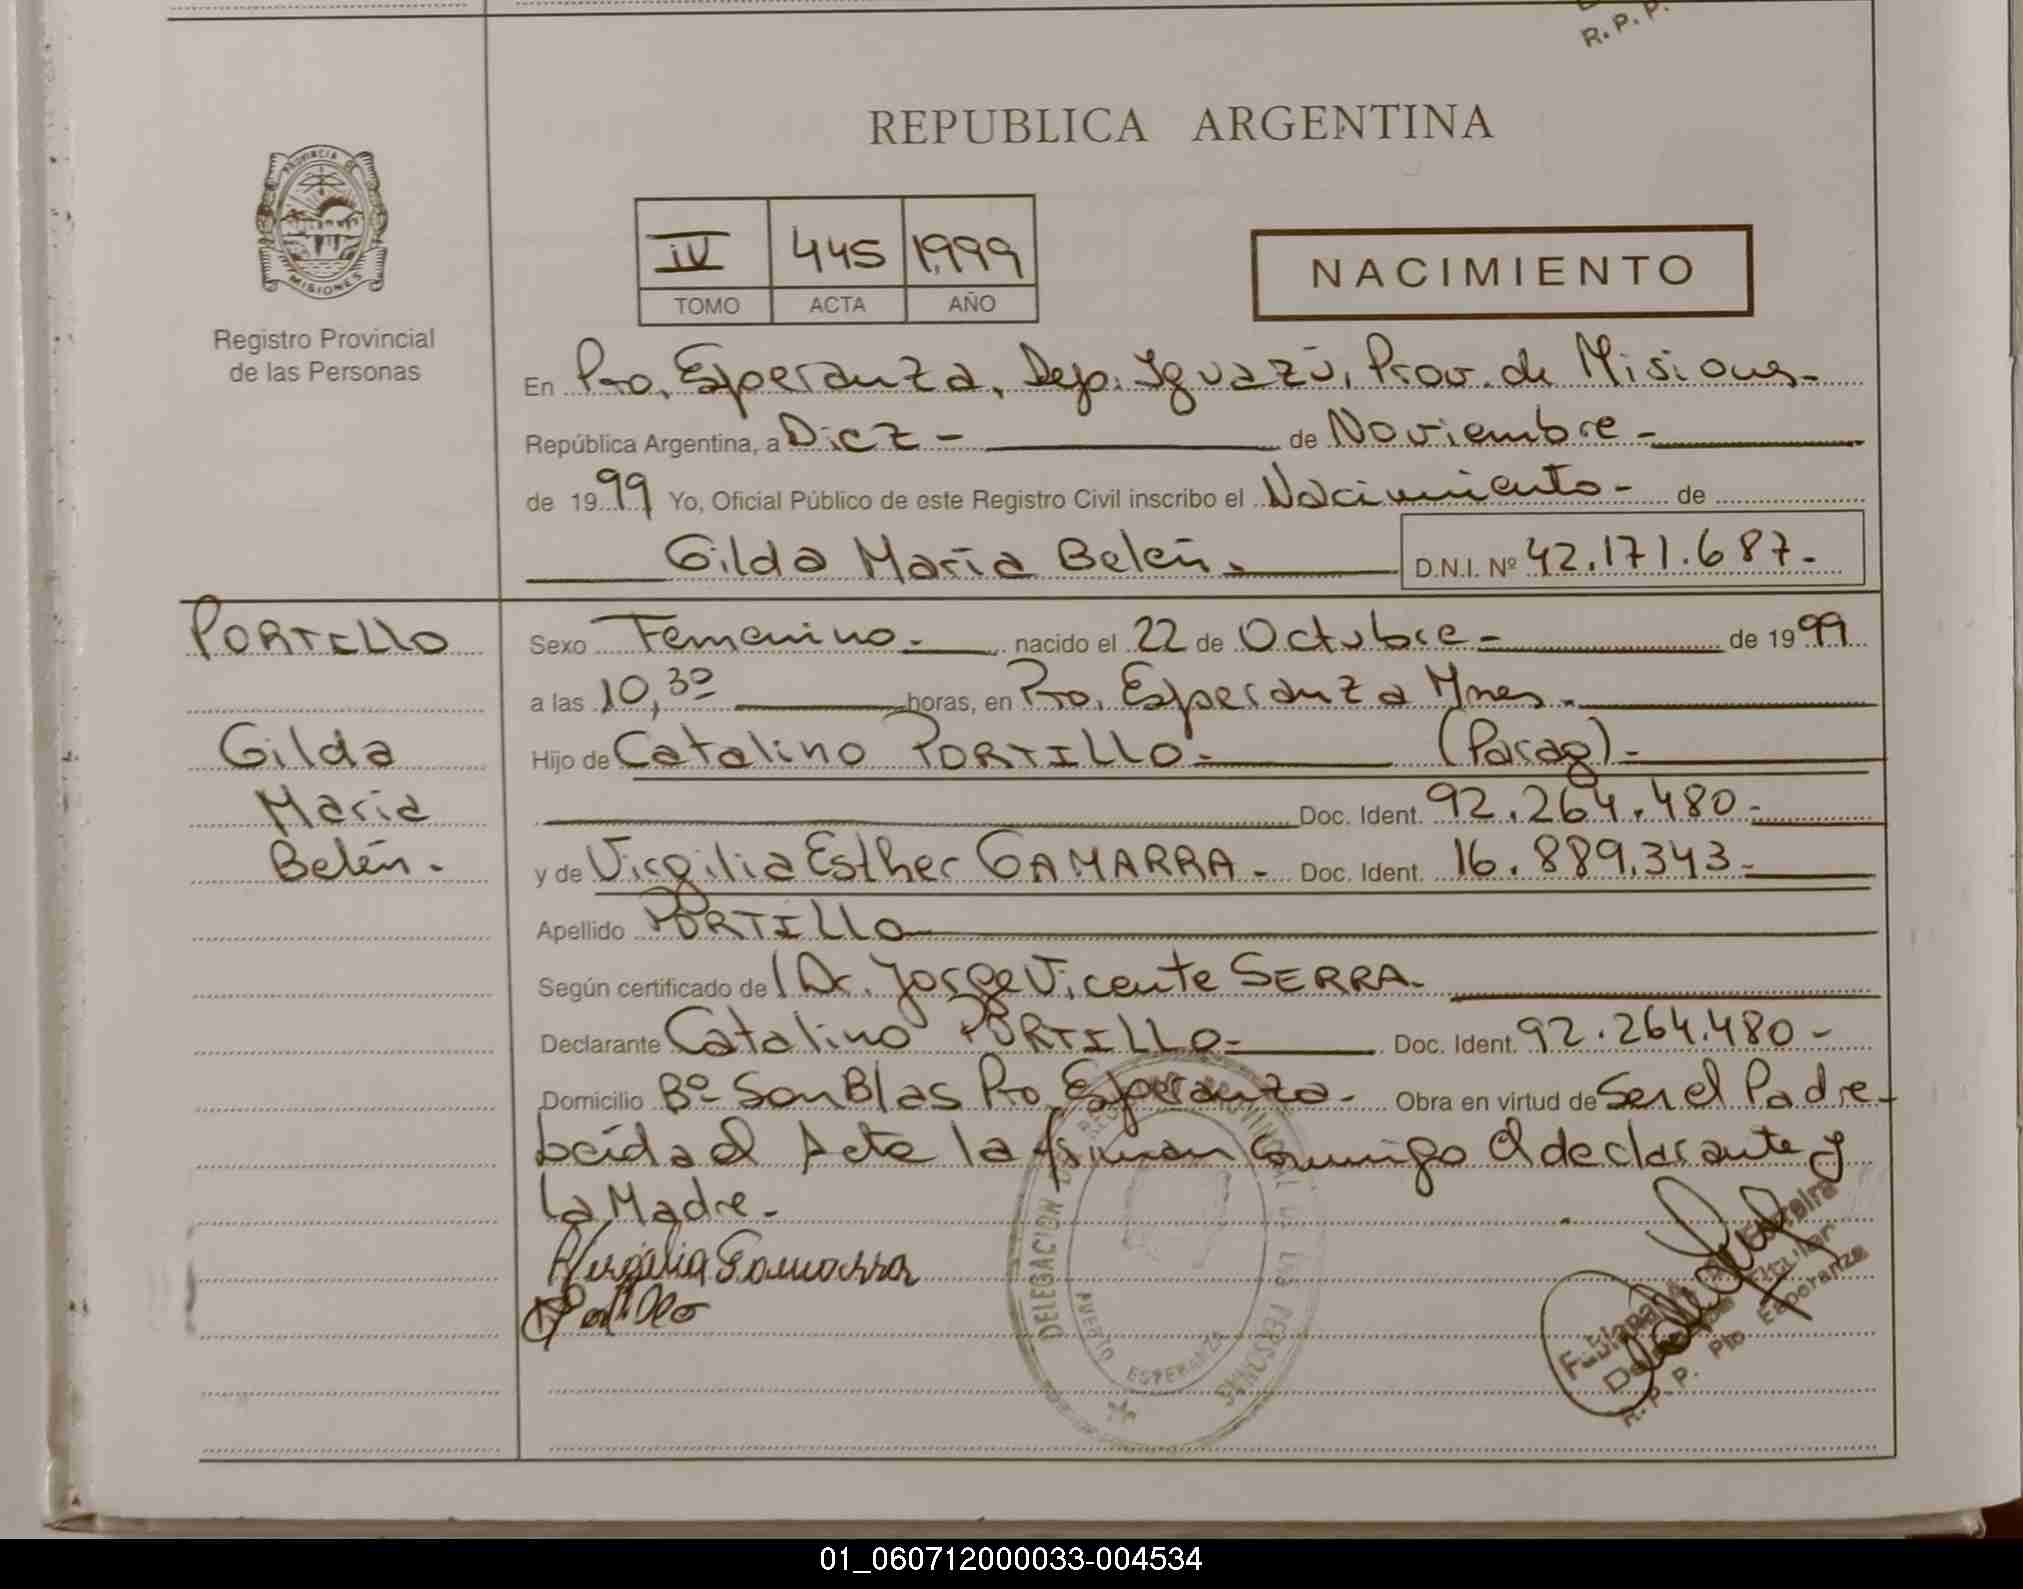 R. P. P.
REPUBLICA ARGENTINA
PROVINCIA DE
MISIONES
Registro Provincial
de las Personas
IV 445 1999
TOMO ACTA AÑO
NACIMIENTO
En Pto. Esperanza, Dep. Iguazú, Prov. de Misiones-
República Argentina, a Diez - de Noviembre -
de 1999 Yo, Oficial Público de este Registro Civil inscribo el Nacimiento - de
Gilda María Belén. D.N.I. Nº 42.171.687-
PORTILLO
Gilda
María
Belén.
Sexo Femenino. nacido el 22 de Octubre - de 1999
a las 10,30 horas, en Pto. Esperanza Mnes.
Hijo de Catalino PORTILLO - (Parag) -
Doc. Ident. 92.264.480-
y de Virgilia Esther GAMARRA - Doc. Ident. 16.889.343-
Apellido PORTILLO
Según certificado de Dr. Jorge Vicente SERRA.
Declarante Catalino PORTILLO - Doc. Ident. 92.264.480 -
Domicilio Bº San Blas Pto. Esperanza - Obra en virtud de Ser el Padre -
Leída el Acta la firman conmigo el declarante y
la Madre -
Virgilia Gamarra
Portillo
DELEGACION PROVINCIAL DE LAS PERSONAS
PUERTO ESPERANZA
Titular
R. P. P. Pto Esperanza
01_060712000033-004534